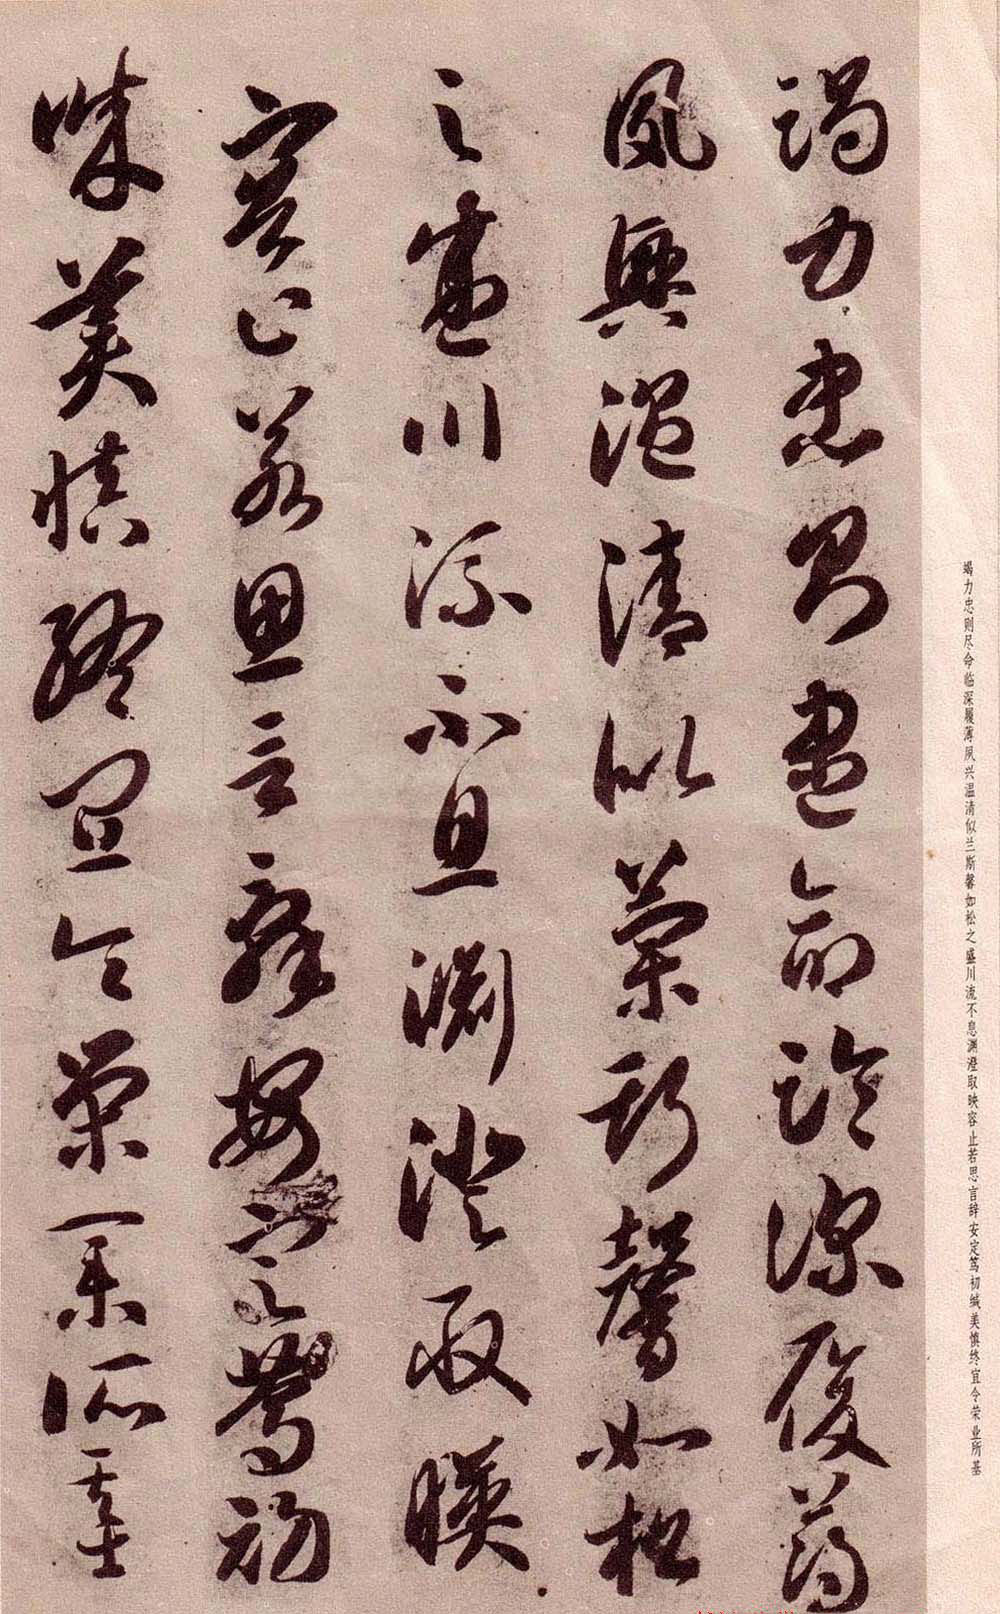 竭力忠则尽命临深履薄夙兴温清似兰斯馨如松之盛川流不息渊澄取映容止若思言辞安定笃初缄美慎终宜令荣业所基
竭力忠則盡命臨深履薄
夙興温清似蘭斯馨如松
之盛川流不息淵澄取映
容止若思言辭安定篤初
誠美慎終宜令榮業所基